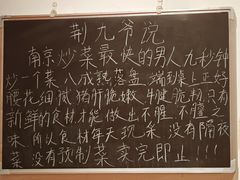 荆九爷说
南京炒菜最快的男人九秒钟
炒一个菜八成熟落盘端到桌上正好
腰花细腻猪肝脆嫩牛腱脆韧只有
新鲜的食材才能做出不腥不膻之
味所以食材每天现杀没有隔夜
菜没有预制菜卖完即止!!!